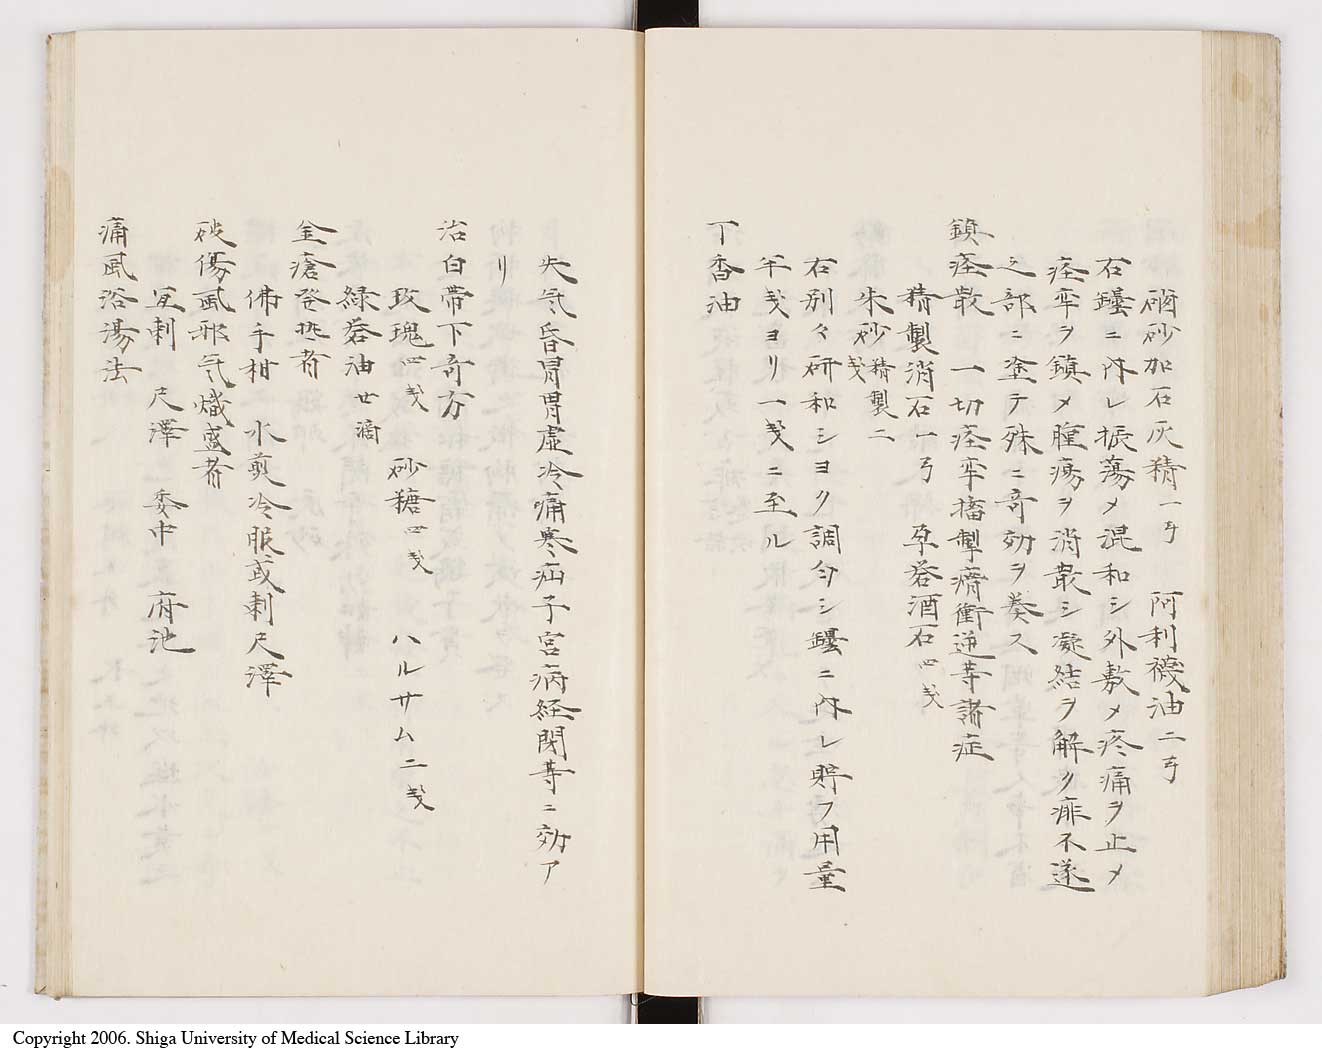 磠砂加石灰精一㐧 阿利襪油二㐧
石罎ニ内レ振蕩メ混和シ外敷メ疼痛ヲ止メ
痙牢ヲ鎮メ腫瘍ヲ消散シ凝結ヲ解ク痱不遂
之部ニ塗テ殊ニ奇効ヲ奏ス
鎮痙散 一切痙牢搐掣癇衝逆等諸症
精製消石一弓 孕礬酒石四戔
朱砂精製二戔
右別々研和シヨク調匀シ罎ニ内レ貯フ用量
半戔ヨリ一戔ニ至ル
丁香油
失気昏冒胃虚冷痛寒疝子宮病経閉等ニ効ア
リ
治白帯下奇方
玫瑰四戔 砂糖四戔 ハルサム二戔
緑礬油廿滴
金瘡発熱者
佛手柑 水煎冷服或刺尺澤
破傷風邪気熾盛者
宜刺 尺澤 委中 府池
痛風浴湯法
Copyright 2006. Shiga University of Medical Science Library